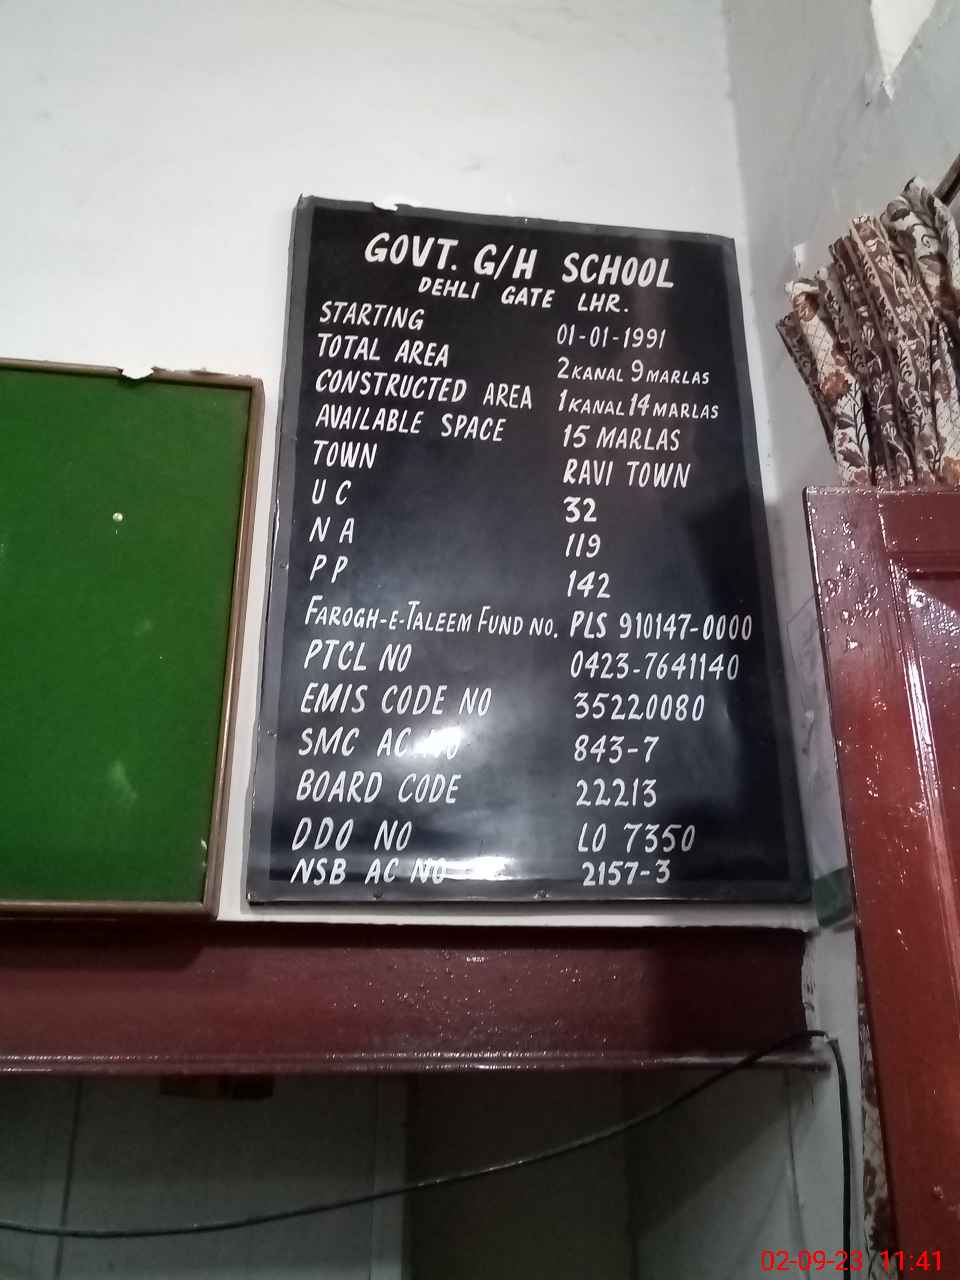 GOVT. G/H SCHOOL
DEHLI GATE LHR.
STARTING 01-01-1991
TOTAL AREA 2 KANAL 9 MARLAS
CONSTRUCTED AREA 1 KANAL 14 MARLAS
AVAILABLE SPACE 15 MARLAS
TOWN RAVI TOWN
U C 32
N A 119
P P 142
FAROGH-E-TALEEM FUND NO. PLS 910147-0000
PTCL NO 0423-7641140
EMIS CODE NO 35220080
SMC AC NO 843-7
BOARD CODE 22213
DDO NO LO 7350
NSB AC NO 2157-3
02-09-23 11:41